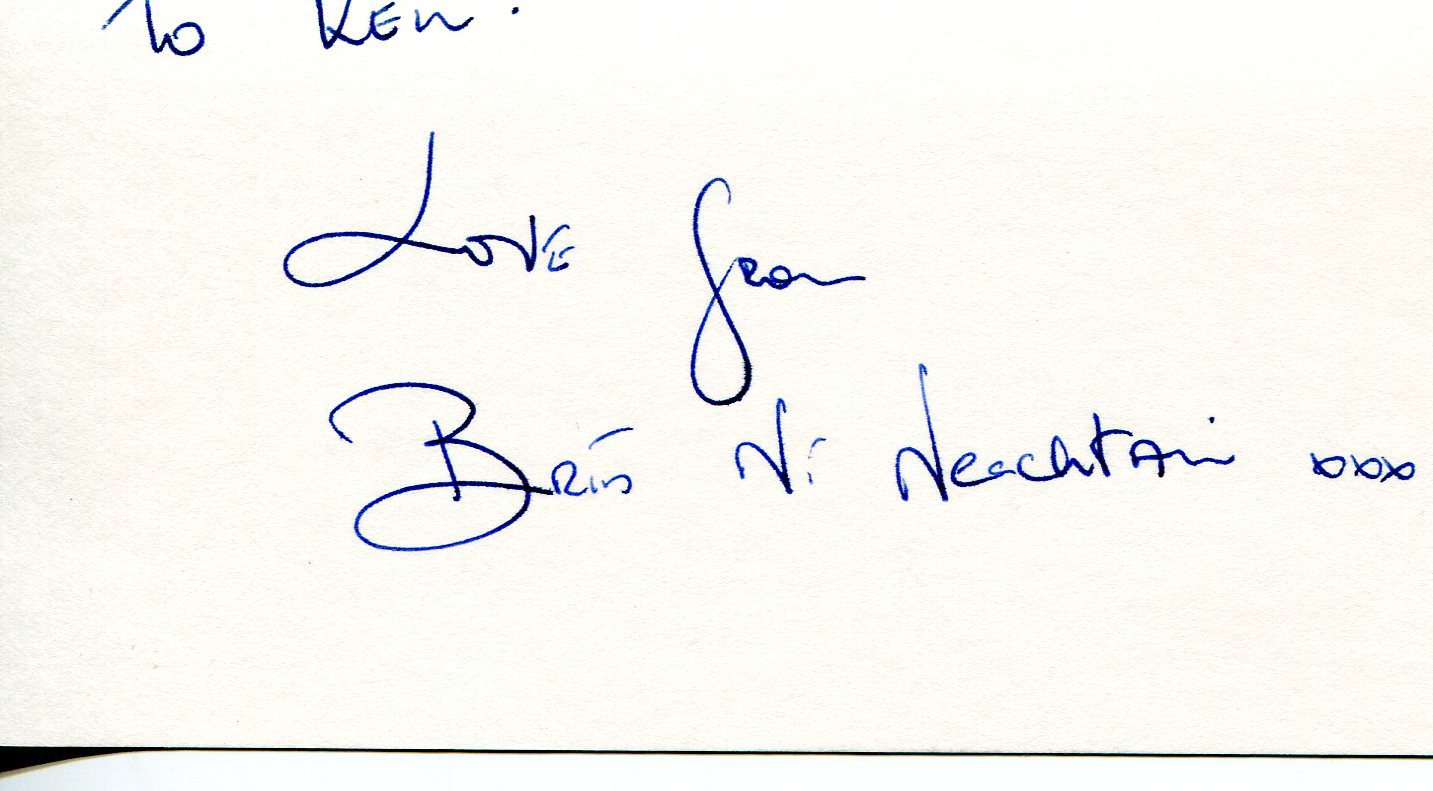 To Ken.
Love from
Bríd Ní Neachtain xxx